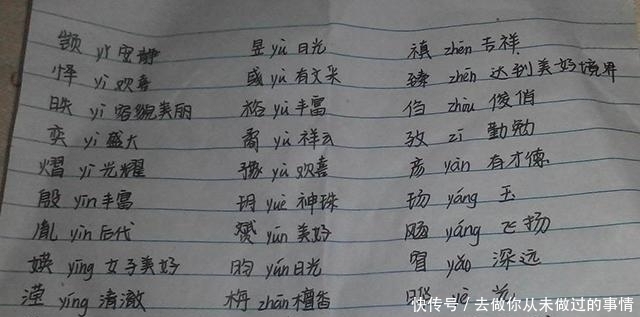 颛 yǐ 安静 昱 yù 日光 禛 zhēn 吉祥
怿 yì 欢喜 彧 yù 有文采 臻 zhēn 达到美好境界
昳 yì 容貌美丽 裕 yù 丰富 㑇 zhòu 俊俏
奕 yì 盛大 矞 yù 祥云 孜 zī 勤勉
熠 yì 光耀 豫 yù 欢喜 彦 yàn 有才德
殷 yīn 丰富 玥 yuè 神珠 玚 yáng 玉
胤 yìn 后代 赟 yūn 美好 飏 yáng 飞扬
媖 yīng 女子美好 昀 yún 日光 窅 yǎo 深远
滢 yíng 清澈 栴 zhān 檀香 晔 yè
快传号/去做你从未做过的事情